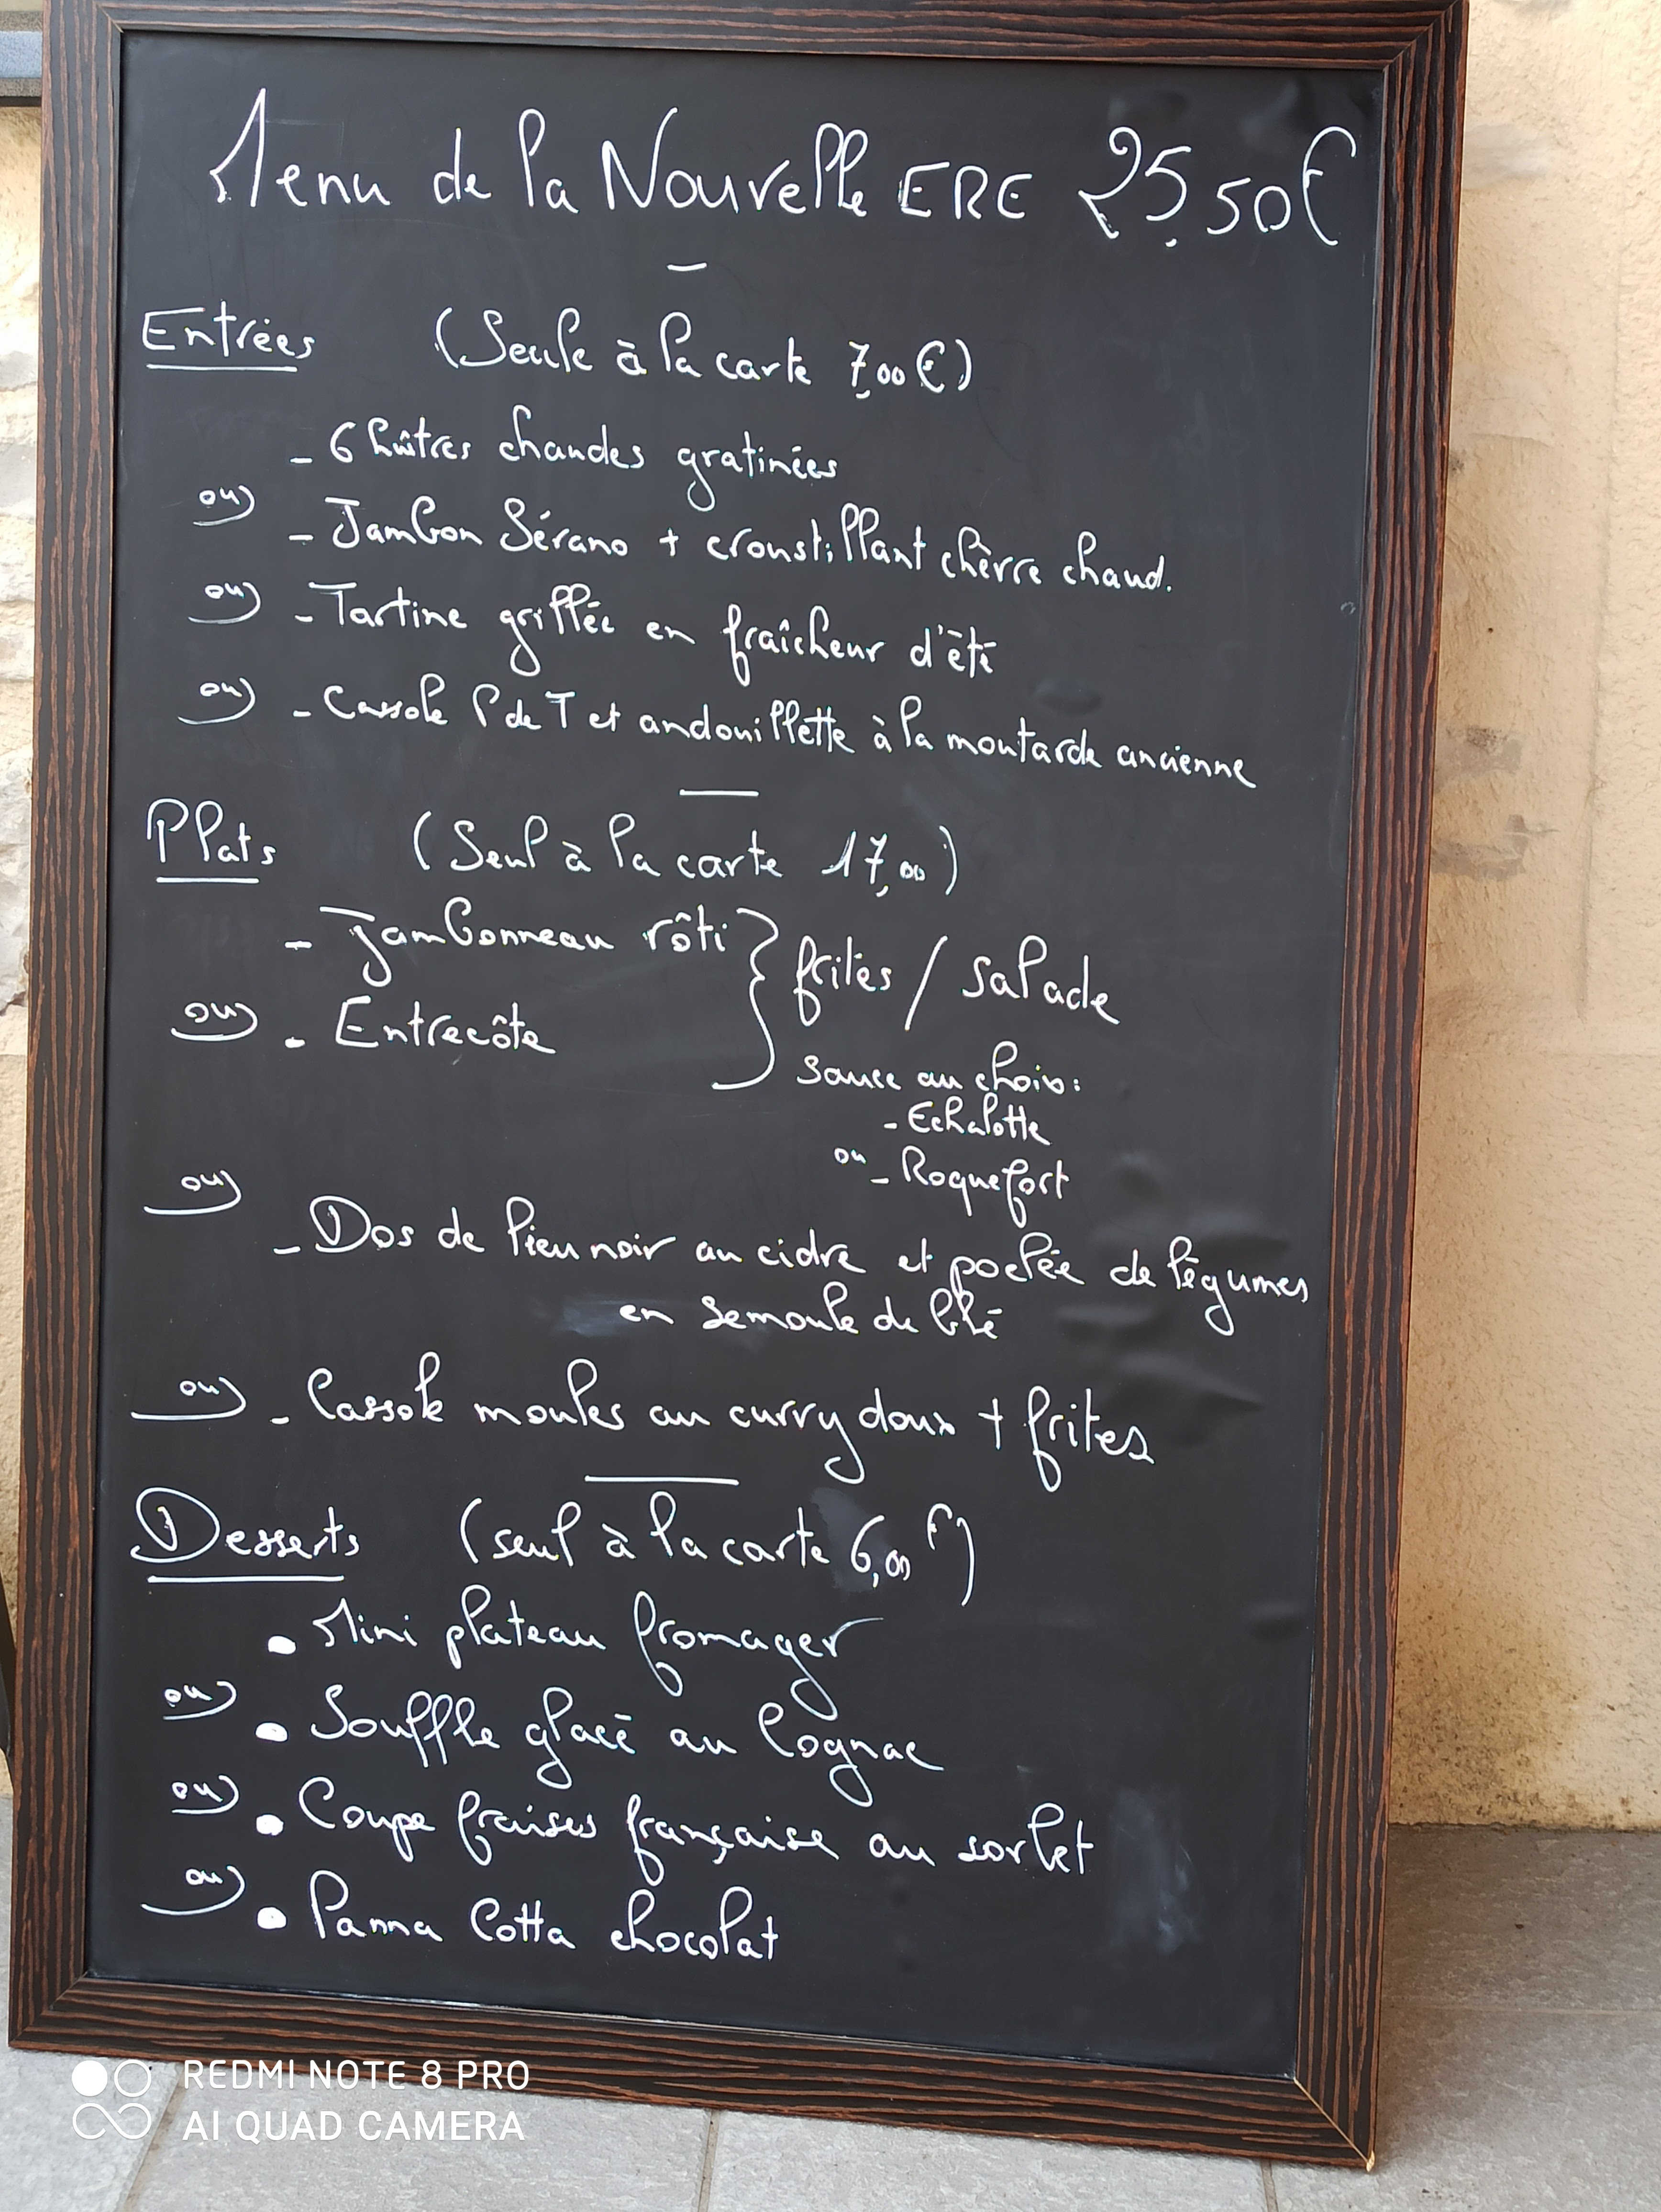 Menu de la Nouvelle ERE 25,50€
Entrées (Seule à la carte 7,00€)
- 6 huîtres chaudes gratinées
ou
- Jambon Sérano + croustillant chèvre chaud.
ou - Tartine grillée en fraîcheur d'été
ou - Cassole P de T et andouillette à la moutarde ancienne
Plats (Seul à la carte 17,00)
- Jambonneau rôti } frites / salade
ou - Entrecôte
Sauce au choix:
- Echalotte
ou - Roquefort
ou
- Dos de lieu noir au cidre et poelée de légumes
en semoule de blé
ou - Cassole moules au curry doux + frites
Desserts (seul à la carte 6,00€)
• Mini plateau fromager
ou • Souffle glacé au Cognac
ou • Coupe fraises française au sorbet
ou • Panna Cotta chocolat
REDMI NOTE 8 PRO
AI QUAD CAMERA